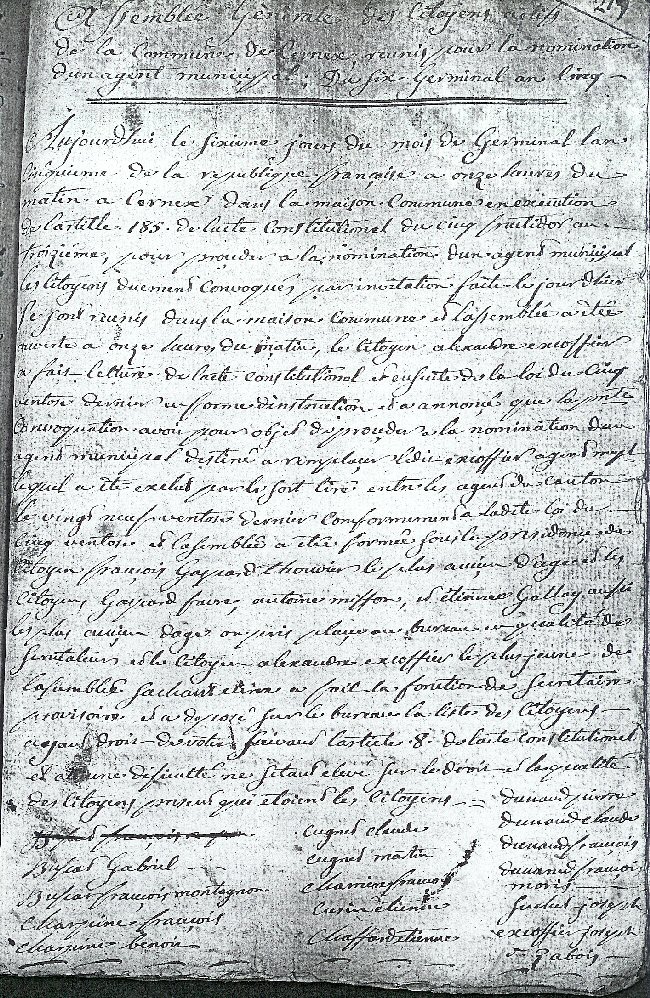 Assemblée Générale des Citoyens actifs
219
de la Commune de Cernex, reunis pour la nomination
d'un agent municipal; Du six Germinal an cinq
Aujourdhui le sixieme jours du mois de Germinal lan
cinquieme de la republique française a onze heures du
matin a Cernex dans la maison Commune en execution
de lartille 185 de lacte Constitutionel du cinq fructidor an
troizieme, pour proceder a la nomination dun agent municipal
les citoyens duement Convoqués par invitation faite le jour dhier
se sont reunis dans la maison Commune et lassemblée a étée
ouverte a onze heures du matin, le Citoyen alexandre excoffier
a fait letture de lacte Constitutionel et ensuite de la loi du Cinq
ventose dernier en forme dinstrution et a annonçé que la pnte
Convoquation avoit pour objet de proçeder a la nomination dun
agent municipal destiné a remplacer ledit excoffier agent mpl
lequel a été exclus par le sort tiré entre les agens du canton
le vingt neuf ventose dernier Conformement a ladite loi du
cinq ventose et lasemblée a étée formée sous la presidence de
Citoyen françois Gaspard thouvier le plus ancien d'age et les
Citoyens Gaspard favre, antoine misson, et étienne Gallay aussi
les plus ancien dage on pris plaçe au bureau en qualité de
scrutateurs et le Citoyen alexandre excoffier le plus jeune de
lasemblée sachant ecrire a fait la fonction de Secretaire
provisoire et a deposé sur le bureau la liste des Citoyens
ayant droit de voter suivant larticle 8 de lacte constitutionel
et aucune difficulté ne s'etant elevé sur le droit et la qualité
des Citoyens presens qui etoient les Citoyens
françois
Gabriel
françois montagnon
Charriere françois
Charriere benoit
cugnet claude
cugnet martin
Charriere françois
étienne
Chaffard étienne
dunand pierre
dunand claude
dunand françois
dunand françois
moris
joseph
excoffier joseph